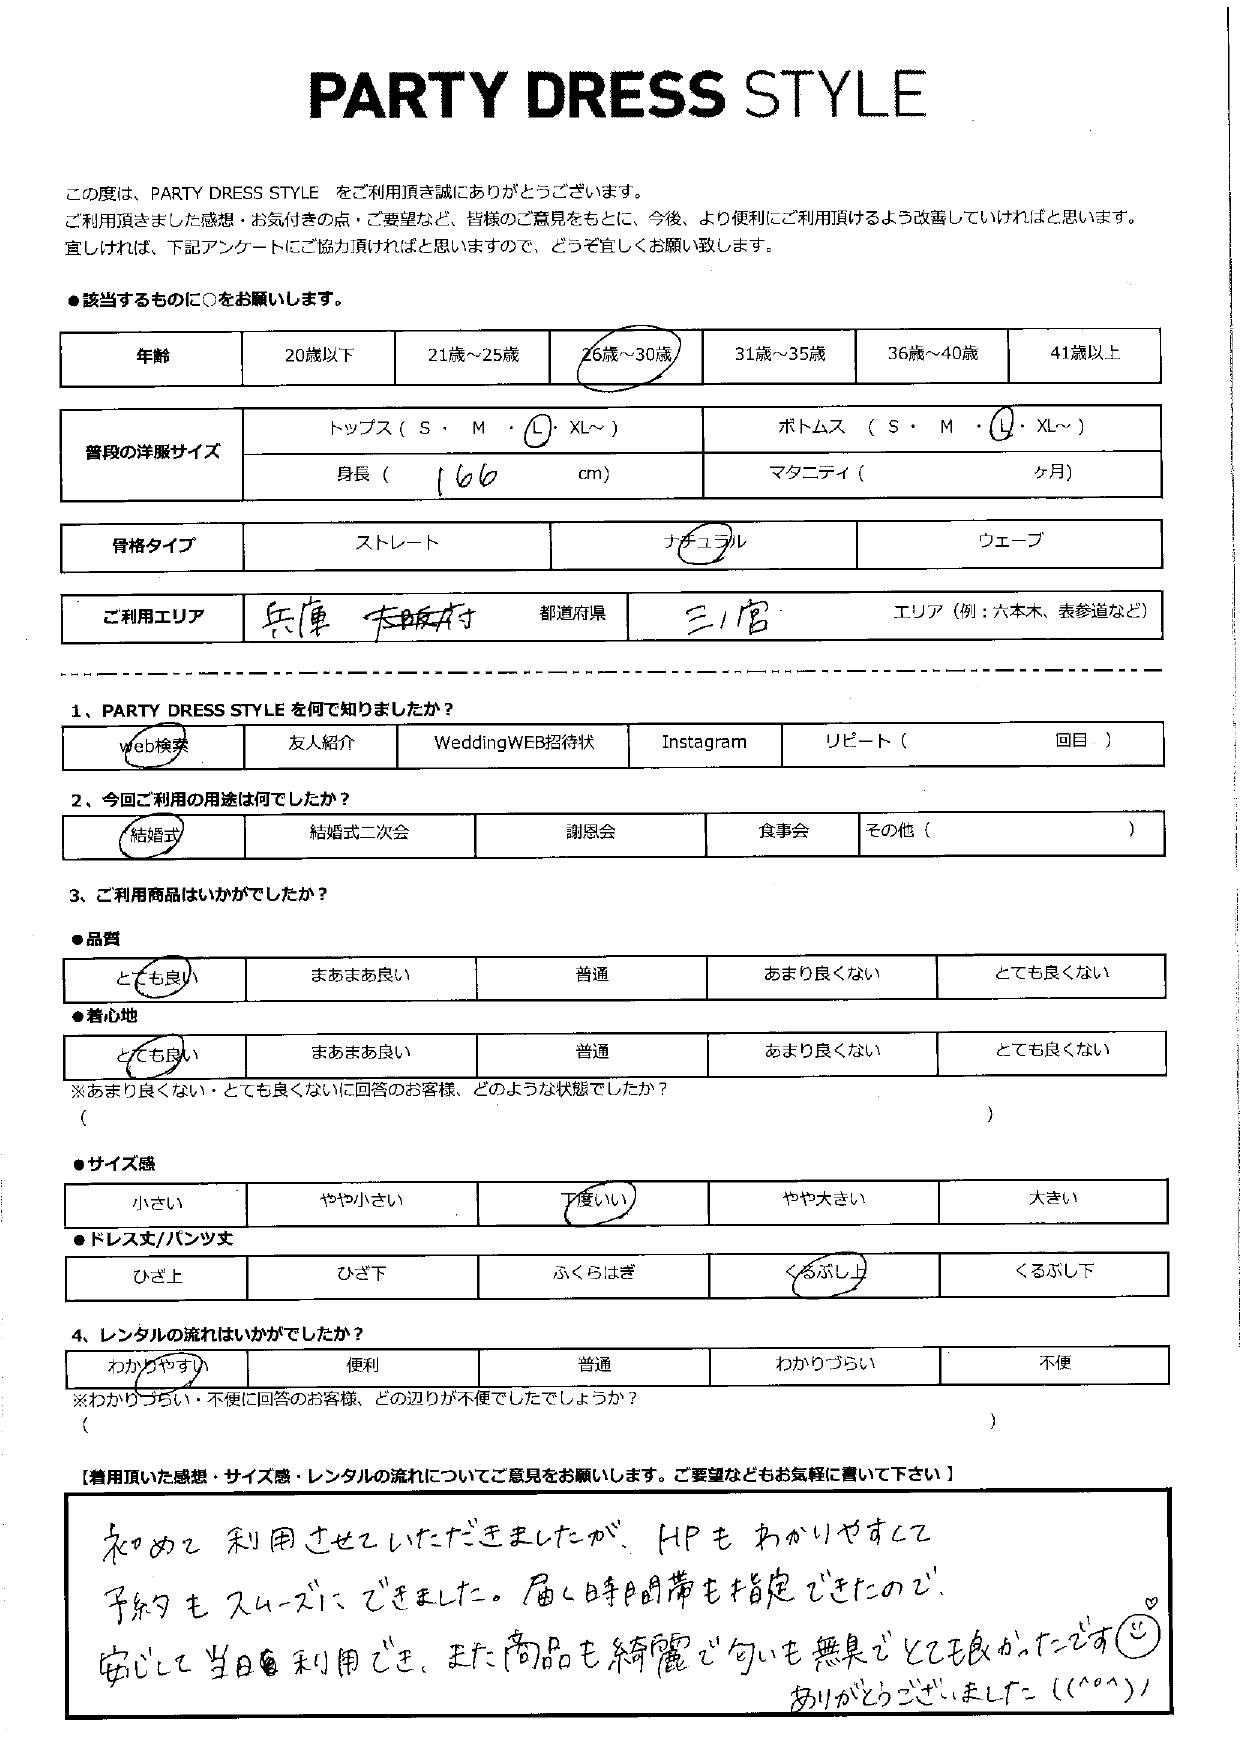 PARTY DRESS STYLE
この度は、PARTY DRESS STYLE をご利用頂き誠にありがとうございます。
ご利用頂きました感想・お気付きの点・ご要望など、皆様のご意見をもとに、今後、より便利にご利用頂けるよう改善していければと思います。
宜しければ、下記アンケートにご協力頂ければと思いますので、どうぞ宜しくお願い致します。
●該当するものに○をお願いします。
年齢 20歳以下 21歳～25歳 26歳～30歳 31歳～35歳 36歳～40歳 41歳以上
普段の洋服サイズ トップス ( S ・ M ・ L ・ XL～ ) ボトムス ( S ・ M ・ L ・ XL～ )
身長 ( 166 cm) マタニティ ( ヶ月)
骨格タイプ ストレート ナチュラル ウェーブ
ご利用エリア 兵庫 大阪府 都道府県 三ノ宮 エリア（例：六本木、表参道など）
1、PARTY DRESS STYLE を何で知りましたか？
web検索 友人紹介 WeddingWEB招待状 Instagram リピート ( 回目 )
2、今回ご利用の用途は何でしたか？
結婚式 結婚式二次会 謝恩会 食事会 その他 ( )
3、ご利用商品はいかがでしたか？
●品質
とても良い まあまあ良い 普通 あまり良くない とても良くない
●着心地
とても良い まあまあ良い 普通 あまり良くない とても良くない
※あまり良くない・とても良くないに回答のお客様、どのような状態でしたか？
( )
●サイズ感
小さい やや小さい 丁度いい やや大きい 大きい
●ドレス丈/パンツ丈
ひざ上 ひざ下 ふくらはぎ くるぶし上 くるぶし下
4、レンタルの流れはいかがでしたか？
わかりやすい 便利 普通 わかりづらい 不便
※わかりづらい・不便に回答のお客様、どの辺りが不便でしたでしょうか？
( )
【着用頂いた感想・サイズ感・レンタルの流れについてご意見をお願いします。ご要望などもお気軽に書いて下さい 】
初めて利用させていただきましたが、HPもわかりやすくて
予約もスムーズにできました。届く時間帯も指定できたので、
安心して当日利用でき、また商品も綺麗で匂いも無臭でとても良かったです
ありがとうございました ((^o^)ﾉ